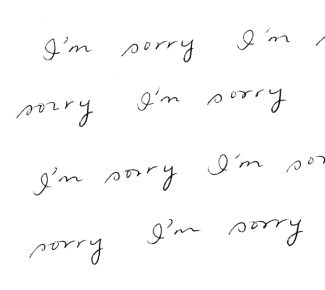 I'm sorry I'm
sorry I'm sorry
I'm sorry I'm
sorry I'm sorry